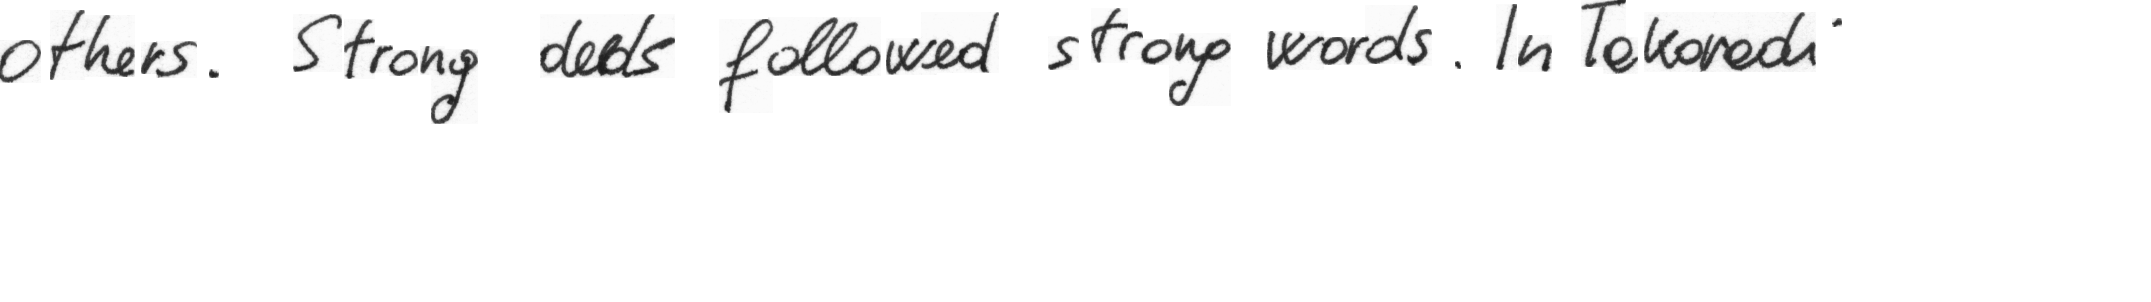 others. Strong deeds followed strong words. In Takoradi